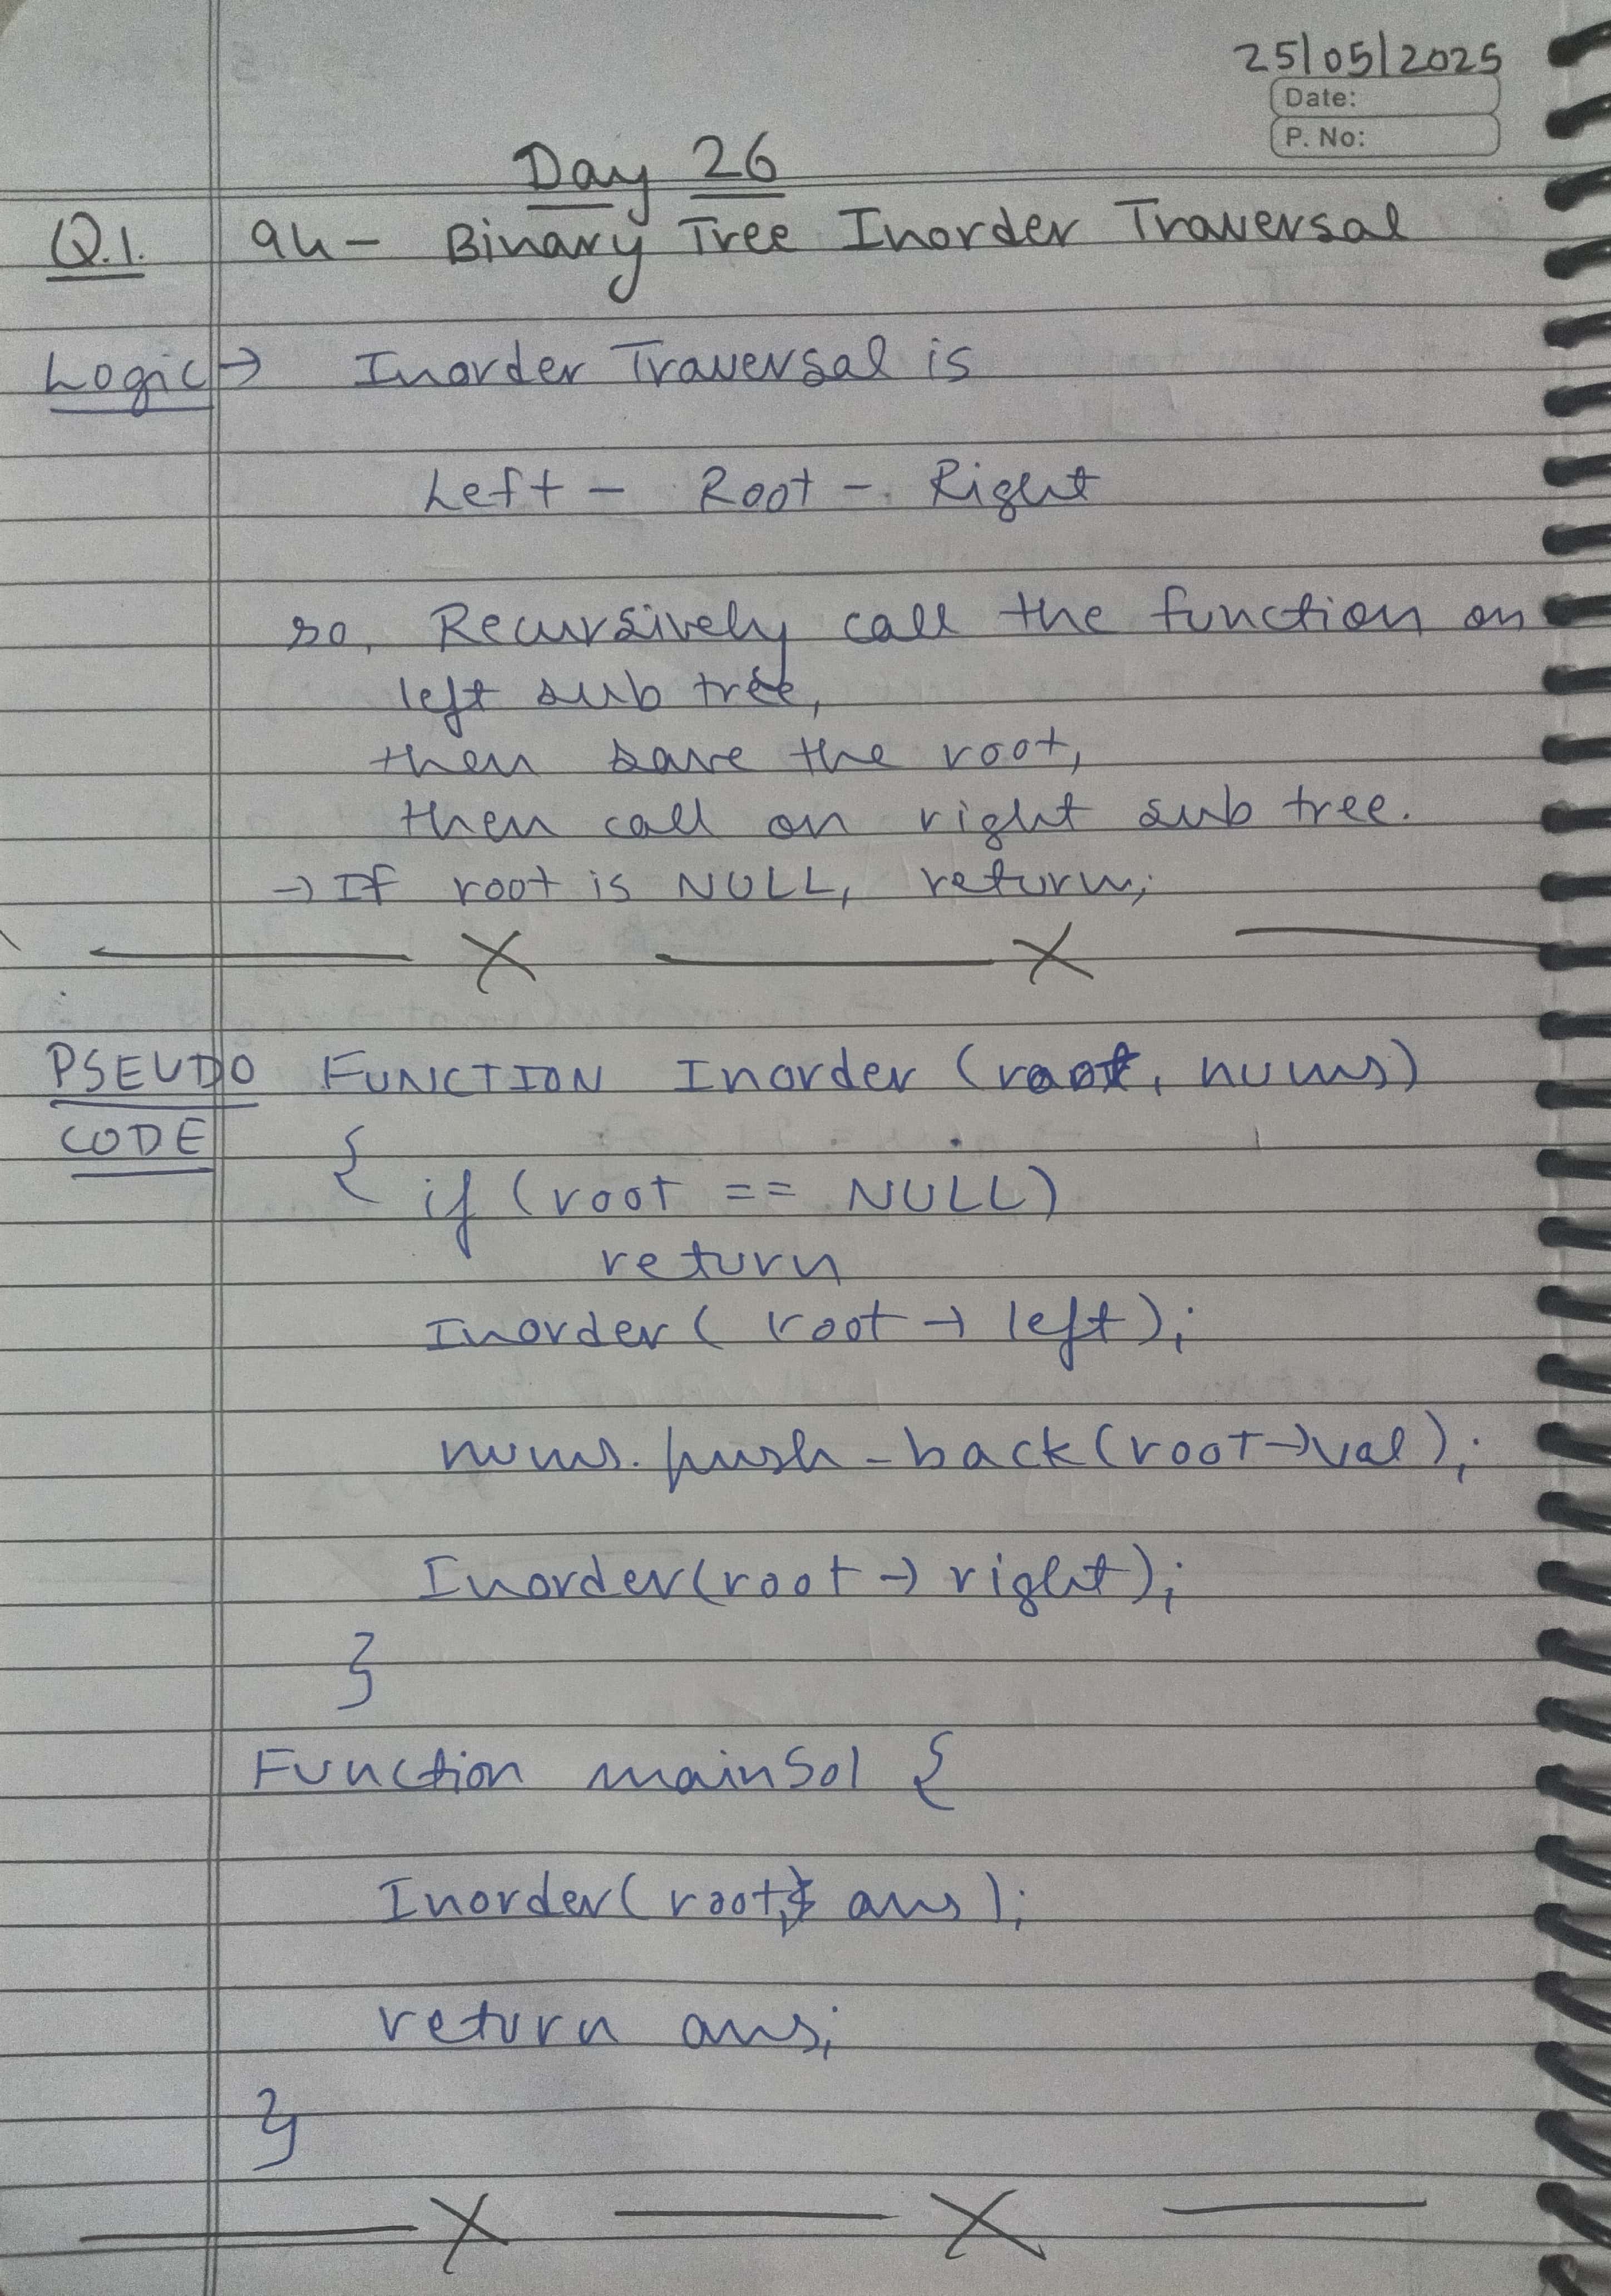 25/05/2025
Date:
P. No:
Day 26
Q.1. 94 - Binary Tree Inorder Traversal
Logic → Inorder Traversal is
Left - Root - Right
so, Recursively call the function on
left sub tree,
then save the root,
then call on right sub tree.
→ If root is NULL, return;
X X
PSEUDO FUNCTION Inorder (root, nums)
CODE
{ if (root == NULL)
return
Inorder( root → left);
nums.push_back(root→val);
Inorder(root → right);
}
Function mainSol {
Inorder(root, ans);
return ans;
}
X X